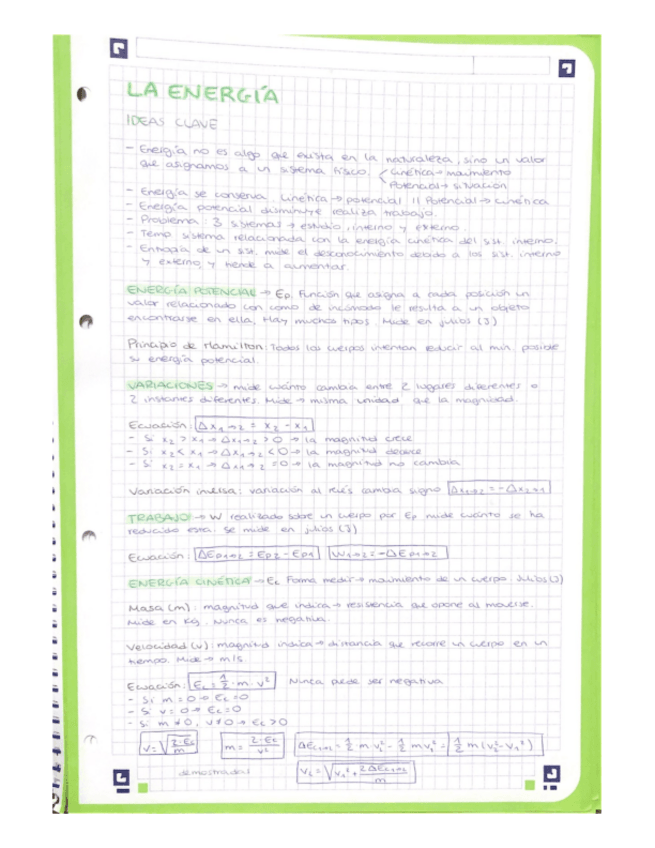 LA ENERGÍA
IDEAS CLAVE
- Energía no es algo que exista en la naturaleza, sino un valor
que asignamos a un sistema físico. Cinética → movimiento
Potencial → situación
- Energía se conserva. Cinética → potencial || Potencial → cinética
- Energía potencial disminuye realiza trabajo.
- Problema: 3 sistemas → estudio, interno y externo.
- Temp. sistema relacionada con la energía cinética del sist. interno.
- Entropía de un sist. mide el desconocimiento debido a los sist. interno
y externo, y tiende a aumentar.
ENERGÍA POTENCIAL → Ep. Función que asigna a cada posición un
valor relacionado con como de incómodo le resulta a un objeto
encontrarse en ella, Hay muchos tipos. Mide en julios (J)
Principio de Hamilton: Todos los cuerpos intentan reducir al mín. posible
su energía potencial.
VARIACIONES → mide cuánto cambia entre 2 lugares diferentes o
2 instantes diferentes. Mide → misma unidad que la magnitud.
Ecuación: Δx1→2 = x2 - x1
- Si x2 > x1 → Δx1→2 > 0 → la magnitud crece
- Si x2 < x1 → Δx1→2 < 0 → la magnitud decrece
- Si x2 = x1 → Δx1→2 = 0 → la magnitud no cambia
Variación inversa: variación al revés cambia signo Δx1→2 = -Δx2→1
TRABAJO → W realizado sobre un cuerpo por Ep mide cuánto se ha
reducido esta. Se mide en julios (J)
Ecuación: ΔEp1→2 = Ep2 - Ep1 W1→2 = -ΔEp1→2
ENERGÍA CINÉTICA → Ec Forma medir → movimiento de un cuerpo Julios (J)
Masa (m): magnitud que indica → resistencia que opone al moverse.
Mide en Kg. Nunca es negativa.
Velocidad (v): magnitud indica → distancia que recorre un cuerpo en un
tiempo. Mide → m/s
Ecuación: Ec = 1/2 · m · v² Nunca puede ser negativa
- Si m = 0 → Ec = 0
- Si v = 0 → Ec = 0
- Si m ≠ 0, v ≠ 0 → Ec > 0
v = √(2·Ec/m) m = 2·Ec/v² ΔEc1→2 = 1/2 m v2² - 1/2 m v1² = 1/2 m (v2² - v1²)
v2 = √(v1² + 2ΔEc1→2/m)